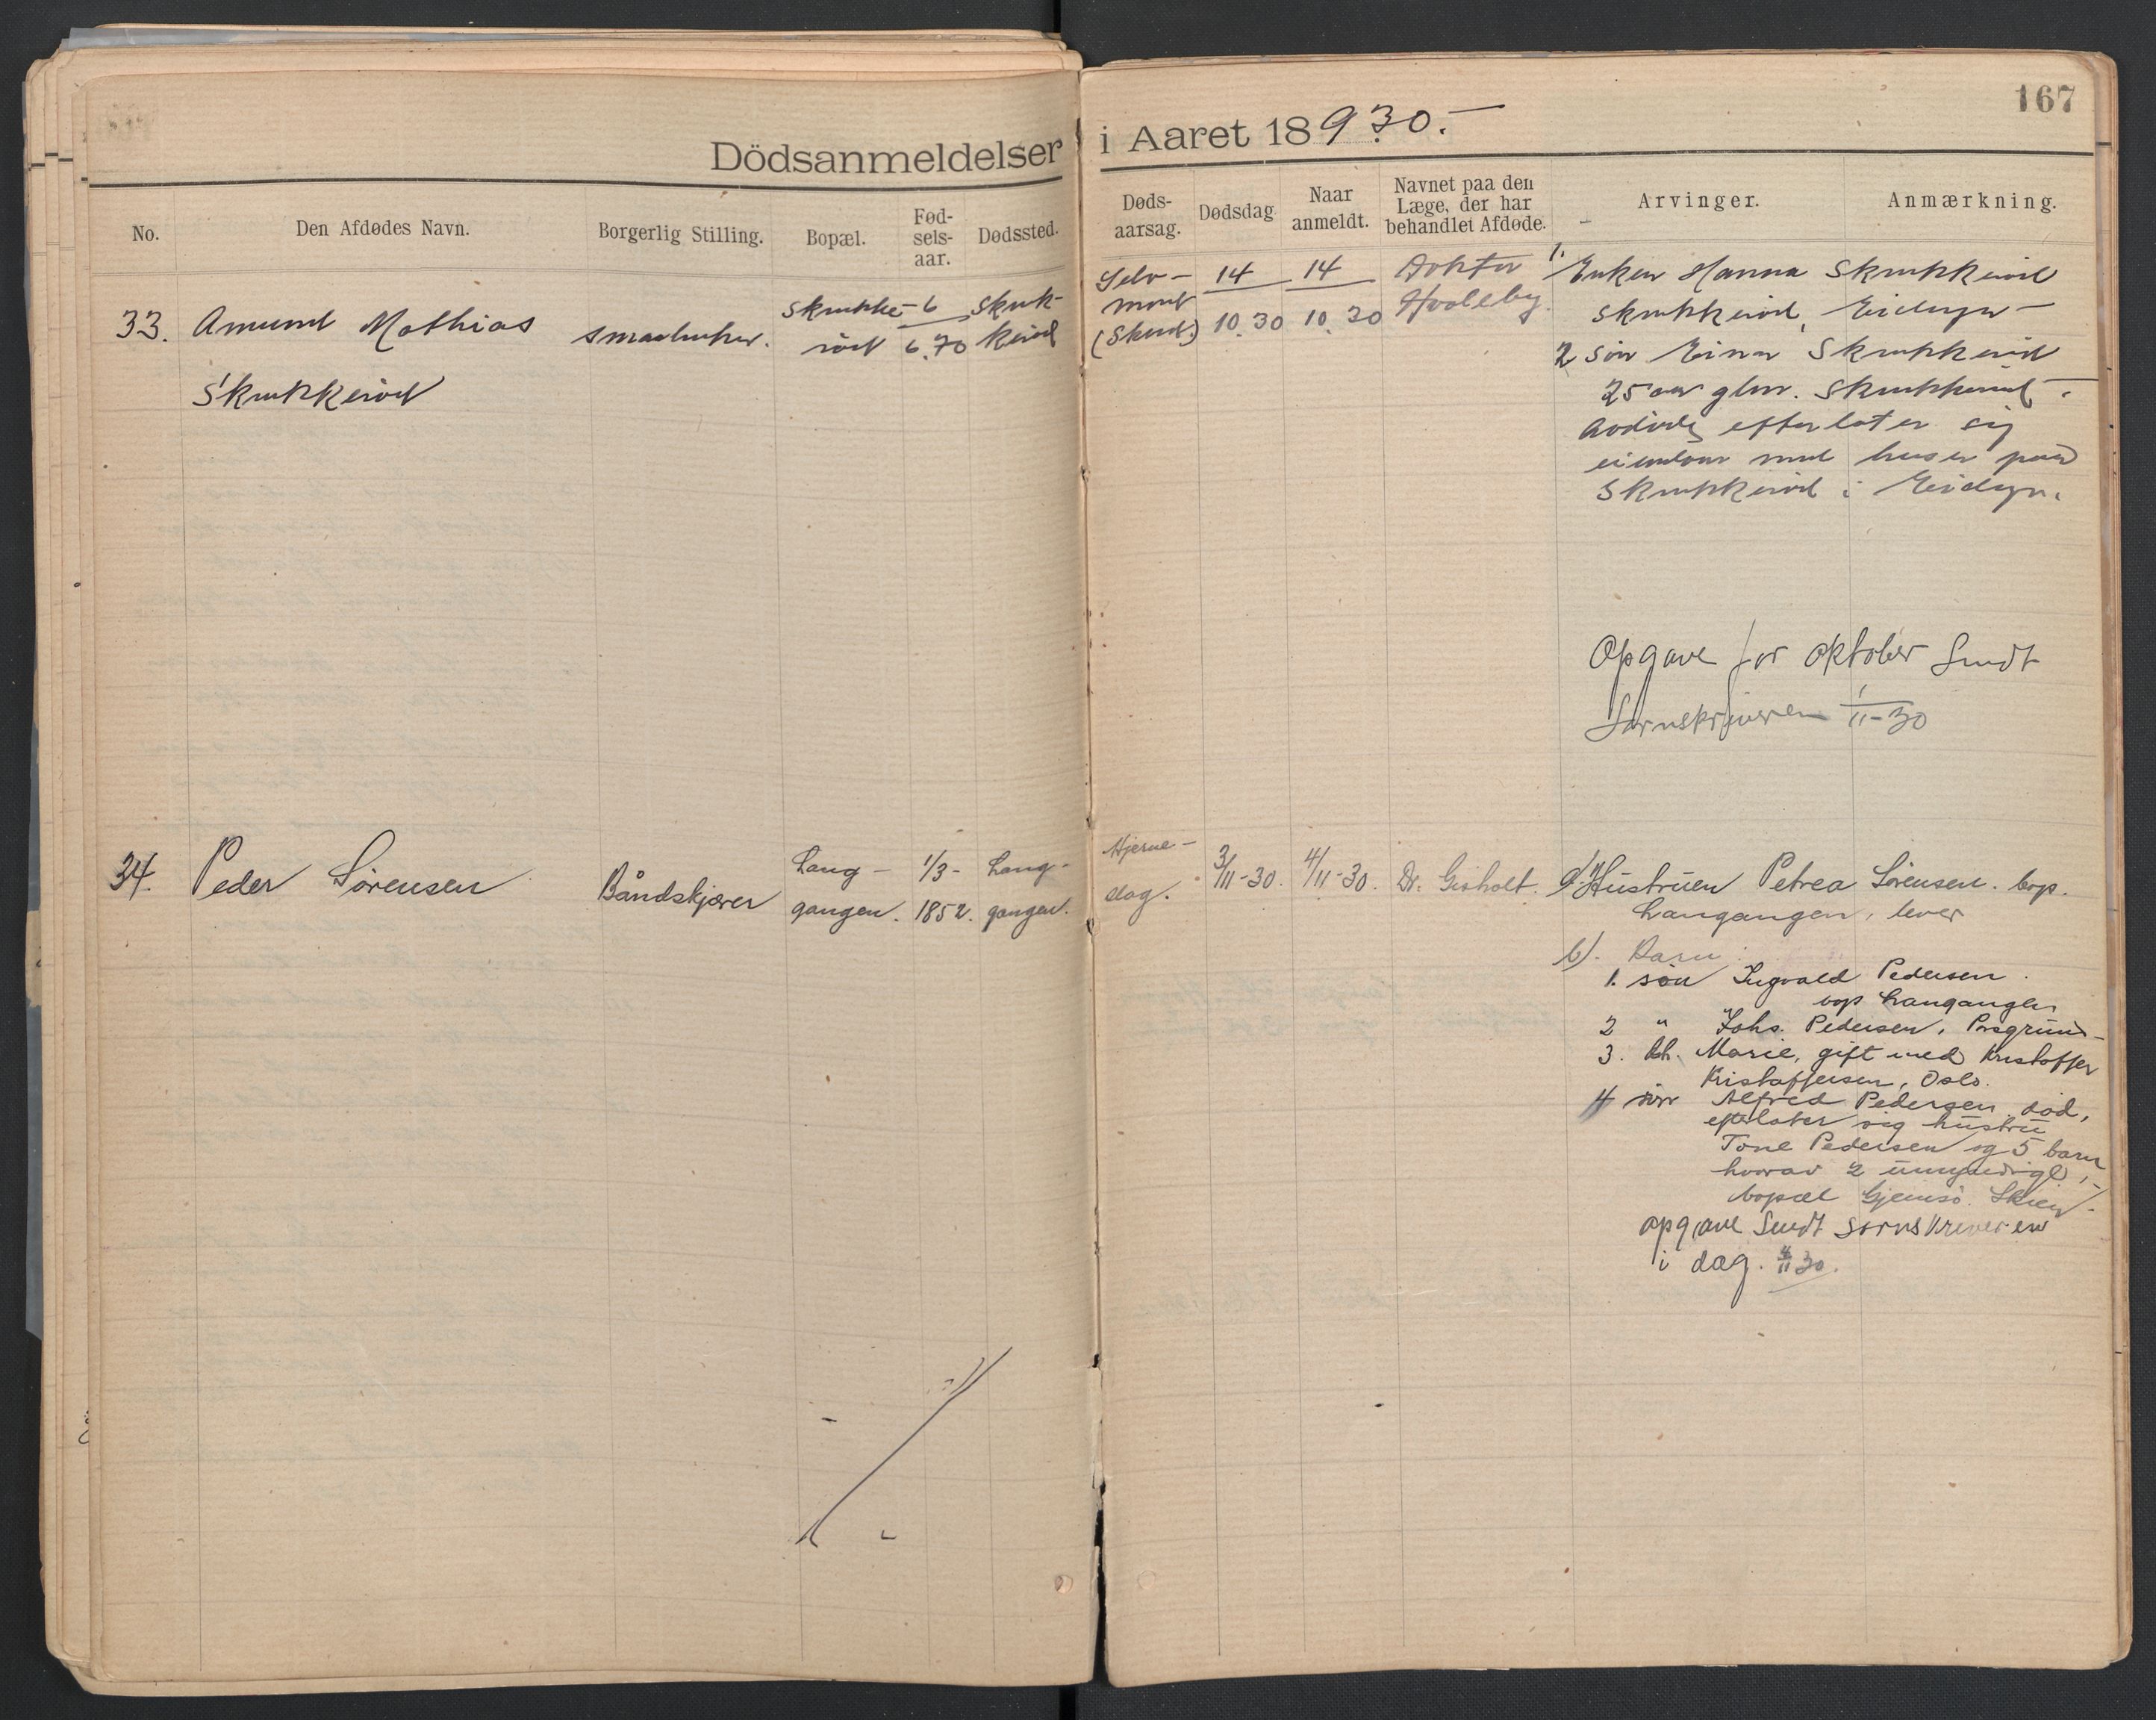 167
Dödsanmeldelser i Aaret 18930.-
No.
Den Afdødes Navn.
Borgerlig Stilling.
Bopæl.
Fød-
sels-
aar.
Dødssted.
Døds-
aarsag.
Dødsdag
Naar
anmeldt.
Navnet paa den
Læge, der har
behandlet Afdøde.
Arvinger.
Anmærkning.
33.
Amund Mathias
Skrukkerød
smaabruker.
Skrukke-
rød
6
6.70
Skruk-
kerød
Selv-
mord
(Skudt)
14
10.30
14
10.30
Doktor
Hvaleby.
1. Enken Hanna Skrukkerød
Skrukkerød, Eidanger
2 søn Einar Skrukkerød
25 aar glm. Skrukkerød.
Avdøde efterlater sig
eiendom med huser paa
Skrukkerød i Eidanger.
Opgave for oktober Sendt
Sornskriveren 1/11-30
34.
Peder Sörensen
Båndskjærer
Lang-
gangen.
1/3-
1852.
Lang-
gangen.
Hjerne-
slag.
3/11-30.
4/11-30.
Dr. Gisholt.
a). Hustruen Petrea Sörensen. bop.
Langangen, lever
b). Barn:
1. søn Ingvald Pedersen.
bop Langangen
2 " Johs. Pedersen, Porsgrund-
3. dt. Marie, gift med Kristoffer
Kristoffersen, Oslo.
4 søn Alfred Pedersen død,
efterlater sig hustru
Tone Pedersen og 5 barn
hvorav 2 umyndige,-
bopæl Gjemsø. Skien.
opgave Sendt sornskriveren
i dag. 4/11 30.